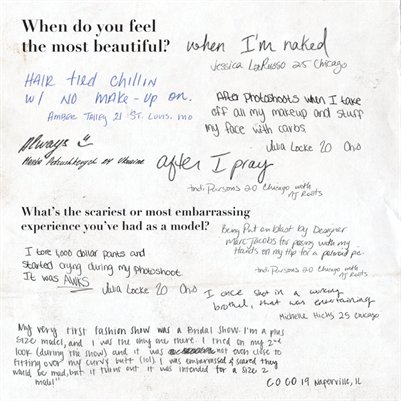 When do you feel
the most beautiful?
when I'm naked
Jessica LaRusso 25 Chicago
HAIR tied CHILLIN
w/ NO MAKE-UP ON.
AMBER Talley 21 ST. LOUIS. MO
After photoshoots when I take
off all my makeup and stuff
my face with carbs
Julia Locke 20 Ohio
Always
24 Ukraine
after I pray
Indi Parsons 20 Chicago with
NJ Roots
What's the scariest or most embarrassing
experience you've had as a model?
Being Put on blast by Designer
Marc Jacobs for posing with my
Hands on my hip for a personal pic.
Indi Parsons 20 Chicago with
NJ Roots
I tore 1,000 dollar pants and
started crying during my photoshoot.
It was AWKS
Julia Locke 20 Ohio
I once shot in a working
brothel, that was entertaining
Michelle Hicks 25 Chicago
My very first fashion show was a Bridal show. I'm a plus
size model, and I was the only one there. I tried on my 2nd
look (during the show) and it was not even close to
fitting over my curvy butt (lol). I was embarrassed & scared they
would be mad, but it turns out it was intended for a size 2
model"
COCO 19 Naperville, IL